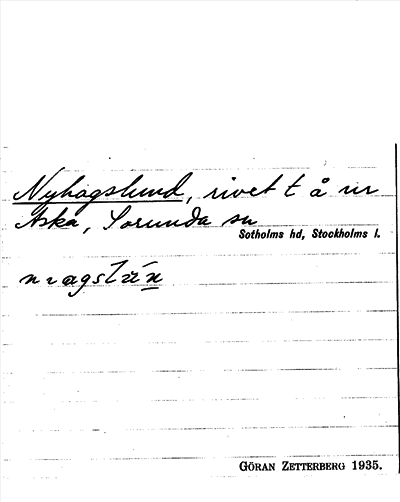 Nyhagslund, rivet t å nr
Aska, Sorunda sn
Sotholms hd, Stockholms l.
GÖRAN ZETTERBERG 1935.